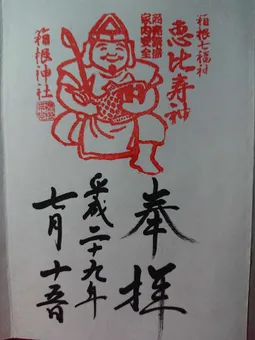 箱根七福神
恵比寿神
家内安全
箱根神社
奉拝
平成二十九年
七月十一日